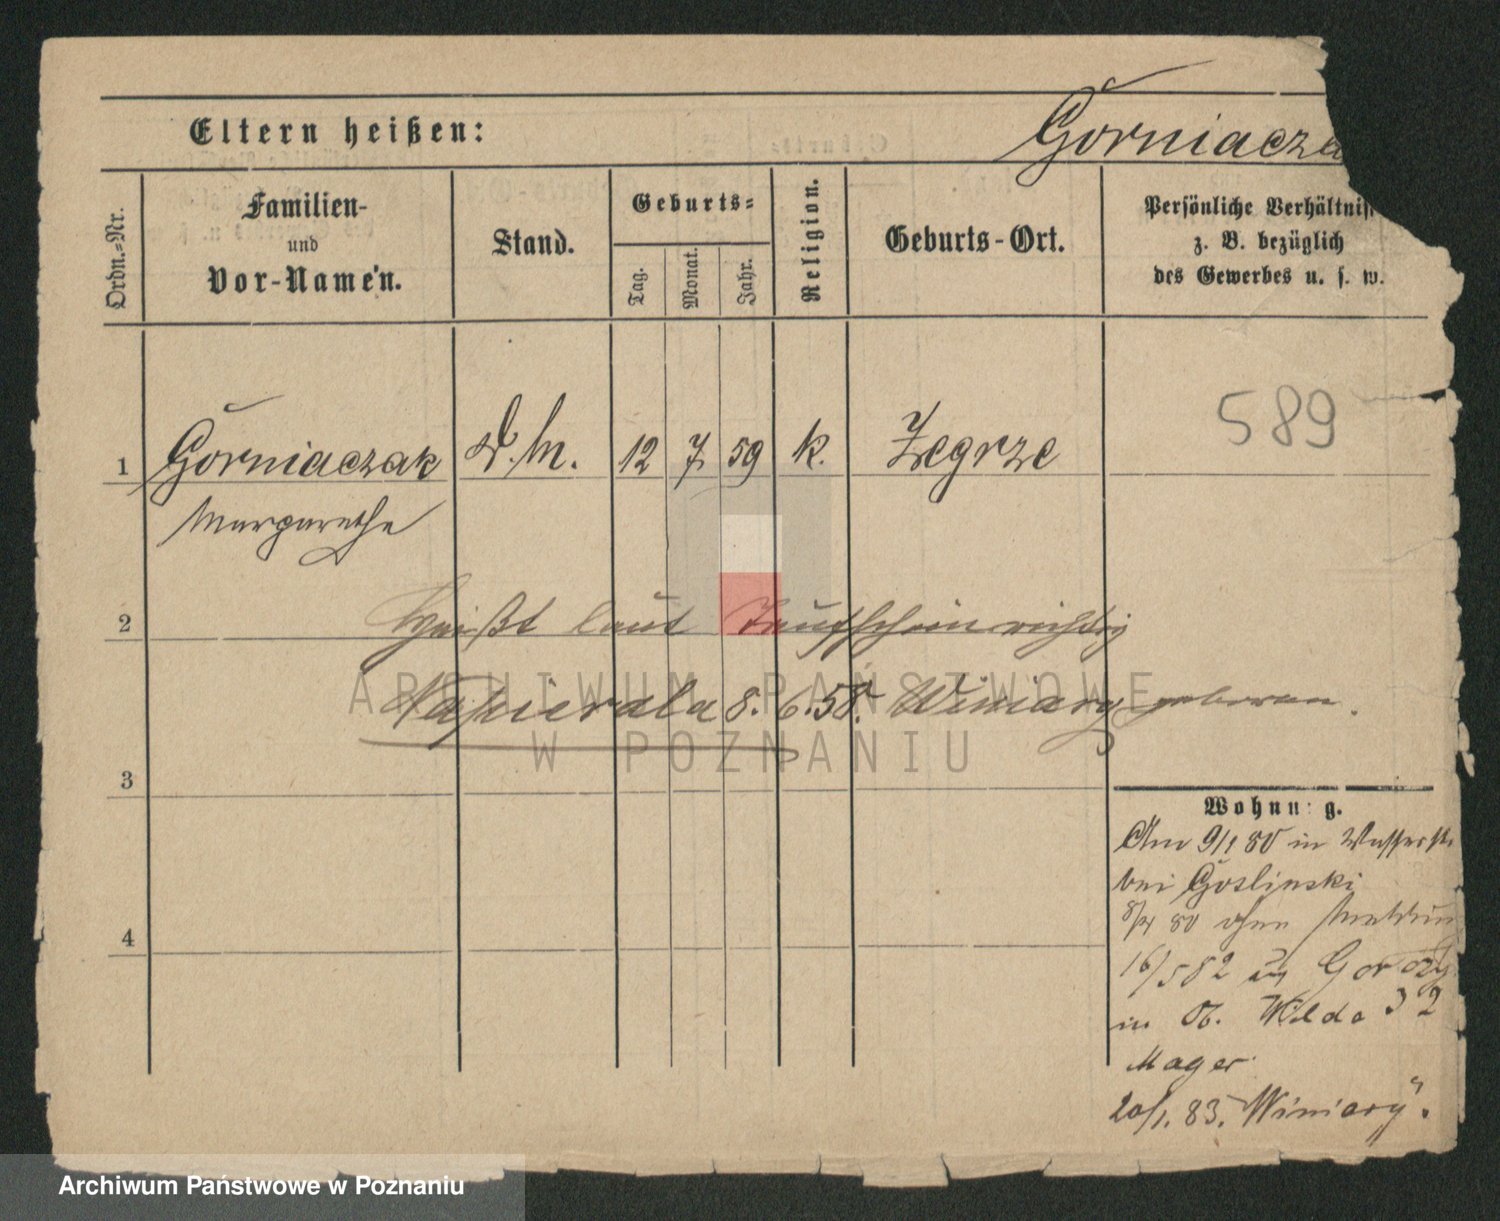 Górniacza
Eltern heißen:
Ordn.-Nr.
Familien-
und
Vor-Namen.
Stand.
Geburts-
Tag.
Monat.
Jahr.
Religion.
Geburts-Ort.
Persönliche Verhältnis
z. B. bezüglich
des Gewerbes u. s. w.
589
1 Górniaczak D. M. 12 7 59 k. Zegrze
Margarethe
2 Heißt laut Taufschein richtig
Napierala 8. 6. 58. Winiary geboren.
3
4
Wohnung.
Am 9/1 80 in Wasserstr
bei Goslinski
8/4 80 ohne Meldun
16/5 82 in
in Ob. Wilda 32
Mager
20/1. 83. Winiary.
ARCHIWUM PAŃSTWOWE
W POZNANIU
Archiwum Państwowe w Poznaniu